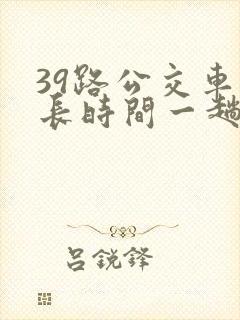 39路公交車
長時間一趟
吕銳鋒